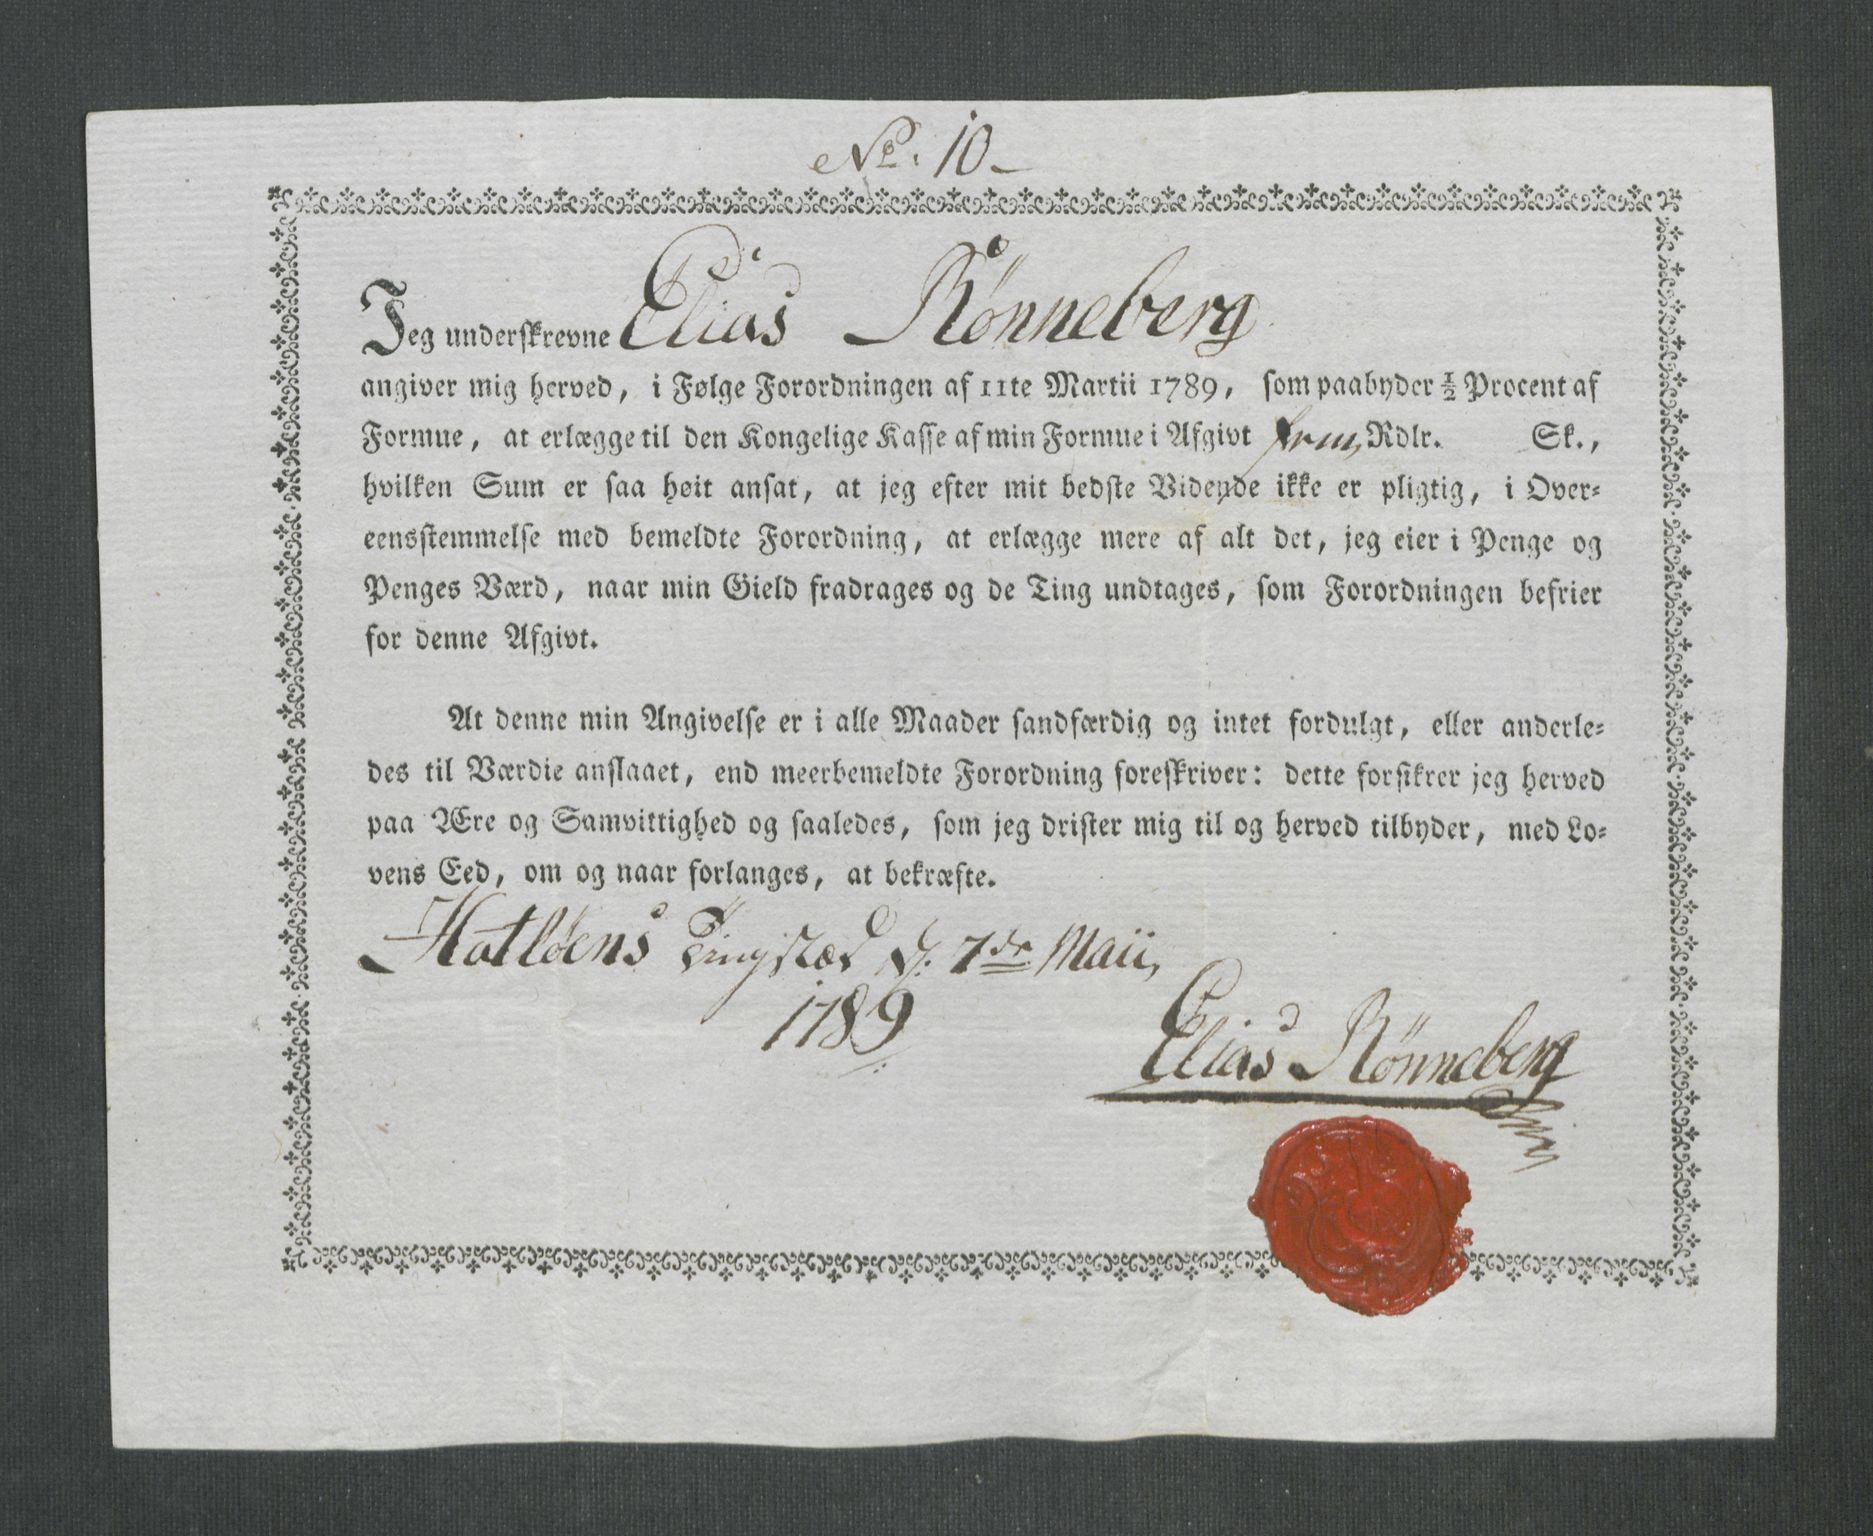 No. 10
Jeg underskrevne Elias Rönneberg
angiver mig herved, i Følge Forordningen af 11te Martii 1789, som paabyder ½ Procent af
Formue, at erlægge til den Kongelige Kasse af min Formue i Afgivt Rdlr. Sk.,
hvilken Sum er saa høit ansat, at jeg efter mit bedste Vidende ikke er pligtig, i Over-
eensstemmelse med bemeldte Forordning, at erlægge mere af alt det, jeg eier i Penge og
Penges Værd, naar min Gield fradrages og de Ting undtages, som Forordningen befrier
for denne Afgivt.
At denne min Angivelse er i alle Maader sandfærdig og intet fordulgt, eller anderle-
des til Værdie anslaaet, end meerbemeldte Forordning foreskriver: dette forsikrer jeg herved
paa Ære og Samvittighed og saaledes, som jeg drister mig til og herved tilbyder, med Lo-
vens Eed, om og naar forlanges, at bekræfte.
Hatlöens Tingstæd d. 7de Maii
1789
Elias Rönneberg